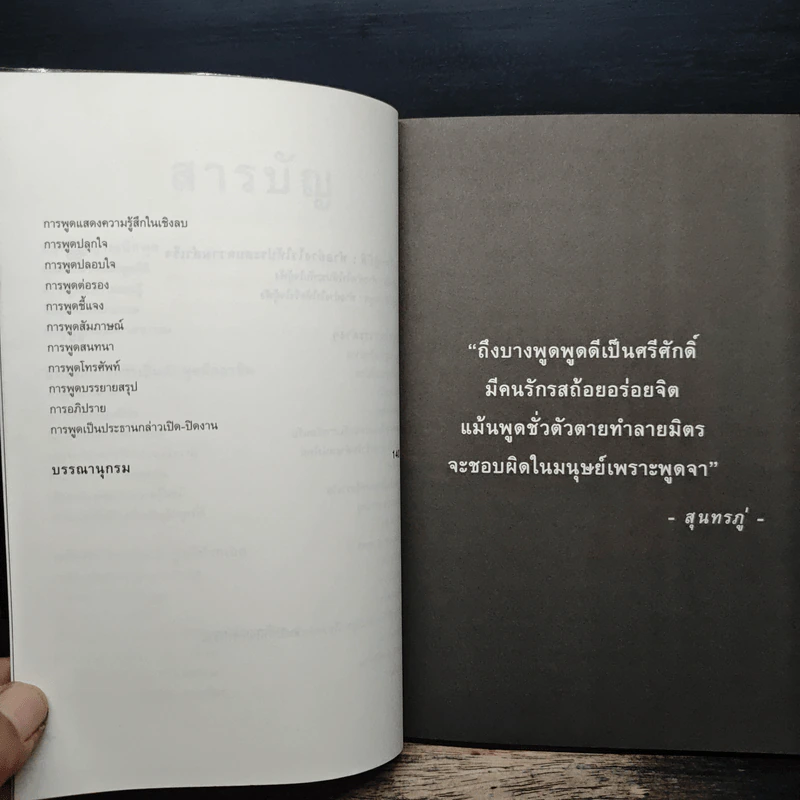 สารบัญ
การพูดแสดงความรู้สึกในเชิงลบ
การพูดปลุกใจ
การพูดปลอบใจ
การพูดต่อรอง
การพูดชี้แจง
การพูดสัมภาษณ์
การพูดสนทนา
การพูดโทรศัพท์
การพูดบรรยายสรุป
การอภิปราย
การพูดเป็นประธานกล่าวเปิด-ปิดงาน
บรรณานุกรม
“ถึงบางพูดพูดดีเป็นศรีศักดิ์
มีคนรักรสถ้อยอร่อยจิต
แม้นพูดชั่วตัวตายทำลายมิตร
จะชอบผิดในมนุษย์เพราะพูดจา”
- สุนทรภู่ -